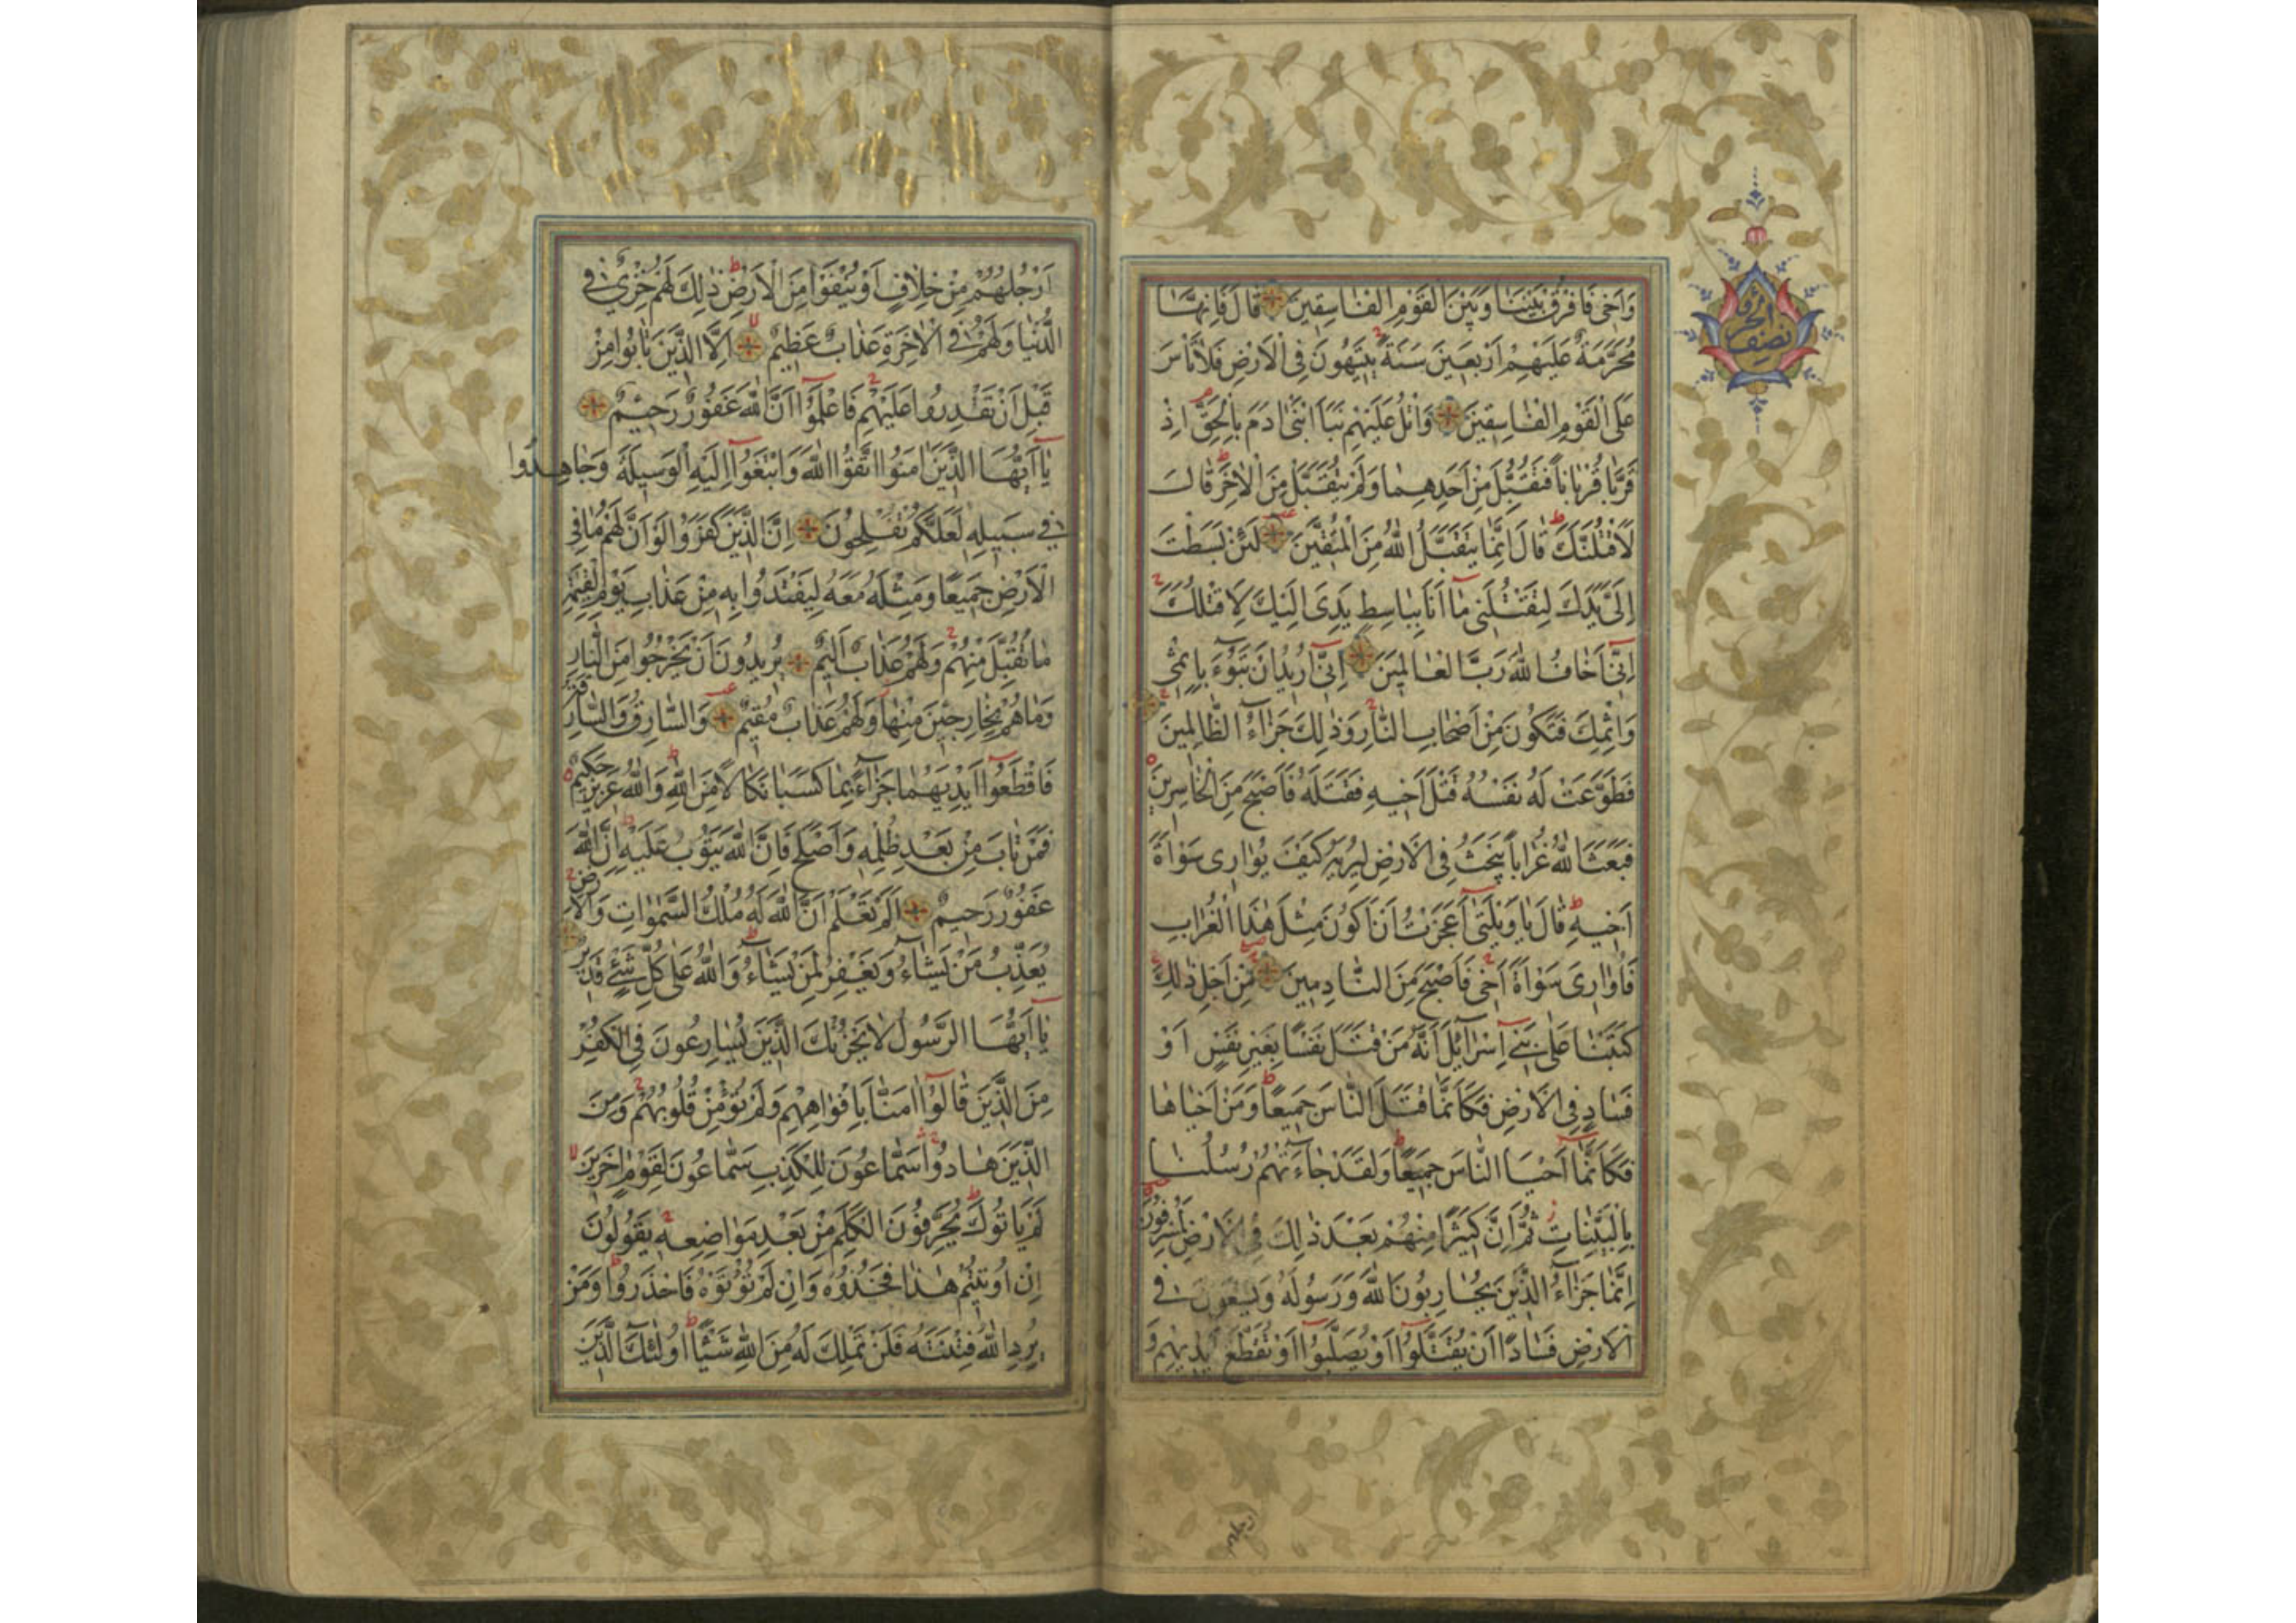 وَاَخی فَافْرُقْ بَیْنَنَا وَبَیْنَ الْقَوْمِ الْفَاسِقِینَ قَالَ فَاِنَّهَا
مُحَرَّمَةٌ عَلَیْهِمْ اَرْبَعِینَ سَنَةً یَتِیهُونَ فِی الْاَرْضِ فَلَا تَاْسَ
عَلَی الْقَوْمِ الْفَاسِقِینَ وَاتْلُ عَلَیْهِمْ نَبَاَ ابْنَیْ ادَمَ بِالْحَقِّ اِذْ
قَرَّبَا قُرْبَاناً فَتُقُبِّلَ مِنْ اَحَدِهِمَا وَلَمْ یُتَقَبَّلْ مِنَ الْاخَرِ قَالَ
لَاَقْتُلَنَّكَ قَالَ اِنَّمَا یَتَقَبَّلُ اللهُ مِنَ الْمُتَّقِینَ لَئِنْ بَسَطْتَ
اِلَیَّ یَدَكَ لِتَقْتُلَنِی مَا اَنَا بِبَاسِطٍ یَدِیَ اِلَیْكَ لِاَقْتُلَكَ
اِنِّی اَخَافُ اللهَ رَبَّ الْعَالَمِینَ اِنِّی اُرِیدُ اَنْ تَبُوْءَ بِاِثْمِی
وَاِثْمِكَ فَتَكُونَ مِنْ اَصْحَابِ النَّارِ وَذٰلِكَ جَزَاءُ الظَّالِمِینَ
فَطَوَّعَتْ لَهُ نَفْسُهُ قَتْلَ اَخِیهِ فَقَتَلَهُ فَاَصْبَحَ مِنَ الْخَاسِرِینَ
فَبَعَثَ اللهُ غُرَاباً یَبْحَثُ فِی الْاَرْضِ لِیُرِیَهُ كَیْفَ یُوَارِی سَوْاَةَ
اَخِیهِ قَالَ یَا وَیْلَتٰی اَعَجَزْتُ اَنْ اَكُونَ مِثْلَ هٰذَا الْغُرَابِ
فَاُوَارِیَ سَوْاَةَ اَخِی فَاَصْبَحَ مِنَ النَّادِمِینَ مِنْ اَجْلِ ذٰلِكَ
كَتَبْنَا عَلٰی بَنِی اِسْرَائِلَ اَنَّهُ مَنْ قَتَلَ نَفْسًا بِغَیْرِ نَفْسٍ اَوْ
فَسَادٍ فِی الْاَرْضِ فَكَاَنَّمَا قَتَلَ النَّاسَ جَمِیعًا وَمَنْ اَحْیَاهَا
فَكَاَنَّمَا اَحْیَا النَّاسَ جَمِیعًا وَلَقَدْ جَاءَتْهُمْ رُسُلُنَا
بِالْبَیِّنَاتِ ثُمَّ اِنَّ كَثِیرًا مِنْهُمْ بَعْدَ ذٰلِكَ فِی الْاَرْضِ لَمُسْرِفُونَ
اِنَّمَا جَزَاءُ الَّذِینَ یُحَارِبُونَ اللهَ وَرَسُولَهُ وَیَسْعَوْنَ فِی
الْاَرْضِ فَسَادًا اَنْ یُقَتَّلُوا اَوْ یُصَلَّبُوا اَوْ تُقَطَّعَ اَیْدِیهِمْ وَ
نصف الحزب
اَرْجُلُهُمْ مِنْ خِلَافٍ اَوْ یُنْفَوْا مِنَ الْاَرْضِ ذٰلِكَ لَهُمْ خِزْیٌ فِی
الدُّنْیَا وَلَهُمْ فِی الْاخِرَةِ عَذَابٌ عَظِیمٌ اِلَّا الَّذِینَ تَابُوا مِنْ
قَبْلِ اَنْ تَقْدِرُوا عَلَیْهِمْ فَاعْلَمُوا اَنَّ اللهَ غَفُورٌ رَحِیمٌ
یَا اَیُّهَا الَّذِینَ امَنُوا اتَّقُوا اللهَ وَابْتَغُوا اِلَیْهِ الْوَسِیلَةَ وَجَاهِدُوا
فِی سَبِیلِهِ لَعَلَّكُمْ تُفْلِحُونَ اِنَّ الَّذِینَ كَفَرُوا لَوْ اَنَّ لَهُمْ مَا فِی
الْاَرْضِ جَمِیعًا وَمِثْلَهُ مَعَهُ لِیَفْتَدُوا بِهِ مِنْ عَذَابِ یَوْمِ الْقِیٰمَةِ
مَا تُقُبِّلَ مِنْهُمْ وَلَهُمْ عَذَابٌ اَلِیمٌ یُرِیدُونَ اَنْ یَخْرُجُوا مِنَ النَّارِ
وَمَا هُمْ بِخَارِجِینَ مِنْهَا وَلَهُمْ عَذَابٌ مُقِیمٌ وَالسَّارِقُ وَالسَّارِقَةُ
فَاقْطَعُوا اَیْدِیَهُمَا جَزَاءً بِمَا كَسَبَا نَكَالًا مِنَ اللهِ وَاللهُ عَزِیزٌ حَكِیمٌ
فَمَنْ تَابَ مِنْ بَعْدِ ظُلْمِهِ وَاَصْلَحَ فَاِنَّ اللهَ یَتُوبُ عَلَیْهِ اِنَّ اللهَ
غَفُورٌ رَحِیمٌ اَلَمْ تَعْلَمْ اَنَّ اللهَ لَهُ مُلْكُ السَّمٰوَاتِ وَالْاَرْضِ
یُعَذِّبُ مَنْ یَشَاءُ وَیَغْفِرُ لِمَنْ یَشَاءُ وَاللهُ عَلٰی كُلِّ شَیْءٍ قَدِیرٌ
یَا اَیُّهَا الرَّسُولُ لَا یَحْزُنْكَ الَّذِینَ یُسَارِعُونَ فِی الْكُفْرِ
مِنَ الَّذِینَ قَالُوا امَنَّا بِاَفْوَاهِهِمْ وَلَمْ تُؤْمِنْ قُلُوبُهُمْ وَمِنَ
الَّذِینَ هَادُوا سَمَّاعُونَ لِلْكَذِبِ سَمَّاعُونَ لِقَوْمٍ اخَرِینَ
لَمْ یَاْتُوكَ یُحَرِّفُونَ الْكَلِمَ مِنْ بَعْدِ مَوَاضِعِهِ یَقُولُونَ
اِنْ اُوتِیتُمْ هٰذَا فَخُذُوهُ وَاِنْ لَمْ تُؤْتَوْهُ فَاحْذَرُوا وَمَنْ
یُرِدِ اللهُ فِتْنَتَهُ فَلَنْ تَمْلِكَ لَهُ مِنَ اللهِ شَیْئًا اُولٰئِكَ الَّذِینَ